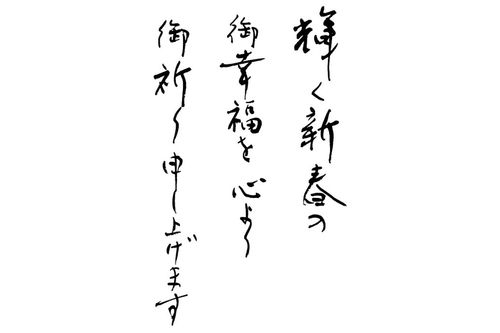 輝く新春の
御幸福を心より
御祈り申し上げます